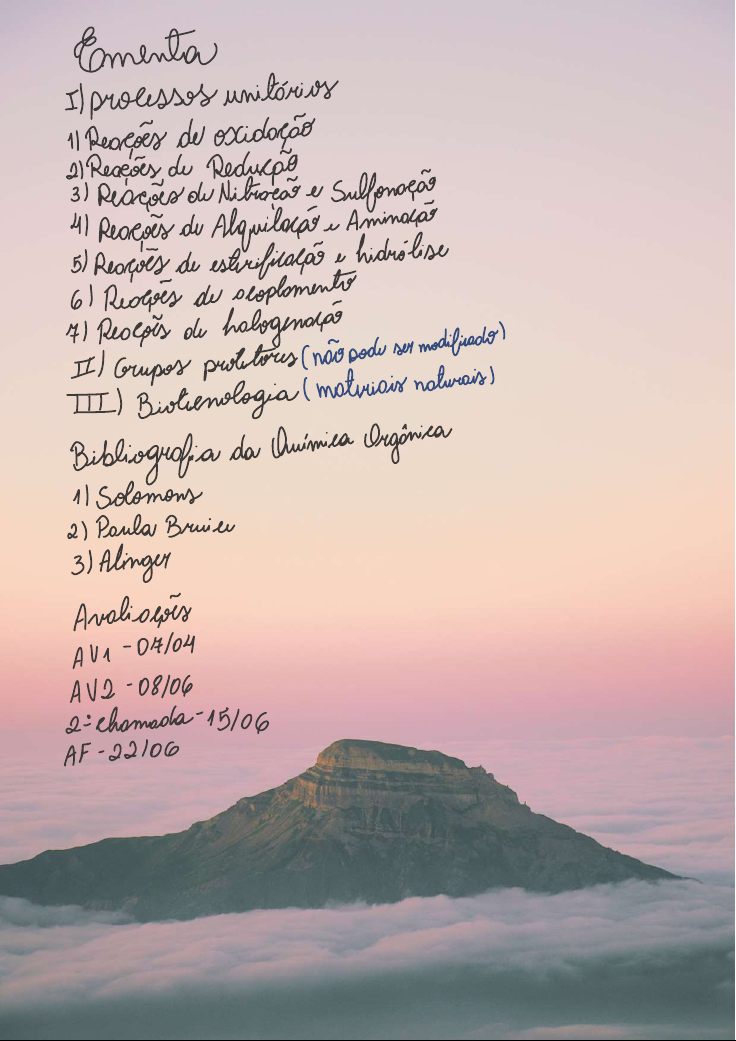 Ementa
I) processos unitários
1) Reações de oxidação
2) Reações de Redução
3) Reações de Nitração e Sulfonação
4) Reações de Alquilação e Aminação
5) Reações de esterificação e hidrólise
6) Reações de acoplamento
7) Reações de halogenação
II) Grupos protetores (não pode ser modificado)
III) Biotecnologia (materiais naturais)
Bibliografia da Química Orgânica
1) Solomons
2) Paula Bruice
3) Alinger
Avaliações
AV1 - 07/04
AV2 - 08/06
2ª chamada - 15/06
AF - 22/06